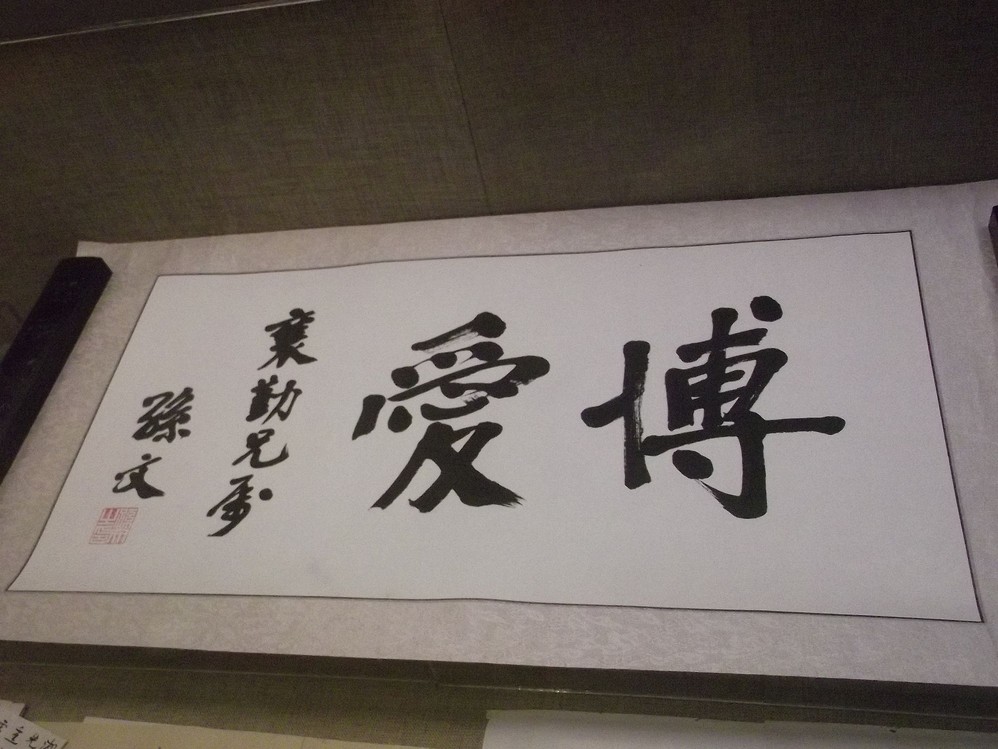 博愛
襄勤兄屬
孫文